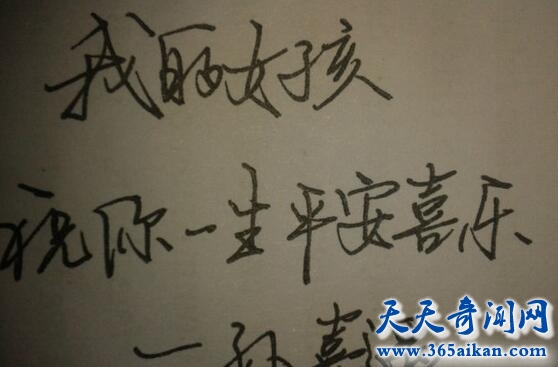 我的女孩
祝你一生平安喜乐
一孙喜
天天奇闻网
www.365aikan.com